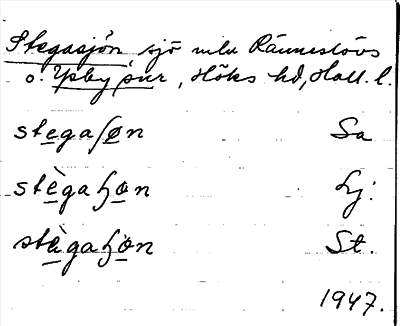 Stegasjön sjö mlu Ränneslövs
o. Ysby snr, Höks hd, Hall. l.
stegaʃøn Sa
stègaɧøn Lj.
stègaɧøn St.
1947.